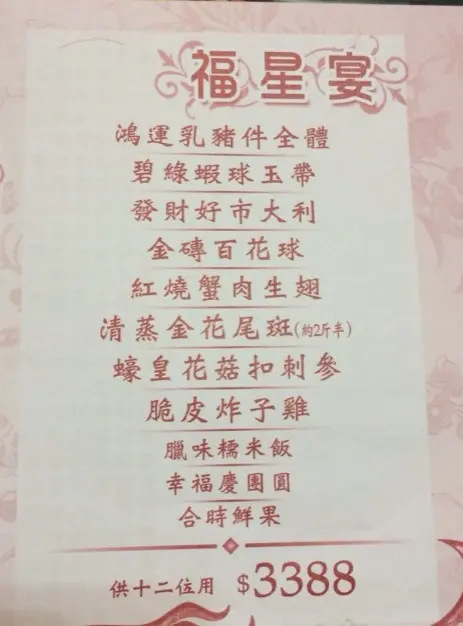 福星宴
鴻運乳豬件全體
碧綠蝦球玉帶
發財好市大利
金磚百花球
紅燒蟹肉生翅
清蒸金花尾斑(約2斤半)
蠔皇花菇扣刺參
脆皮炸子雞
臘味糯米飯
幸福慶團圓
合時鮮果
供十二位用 $3388